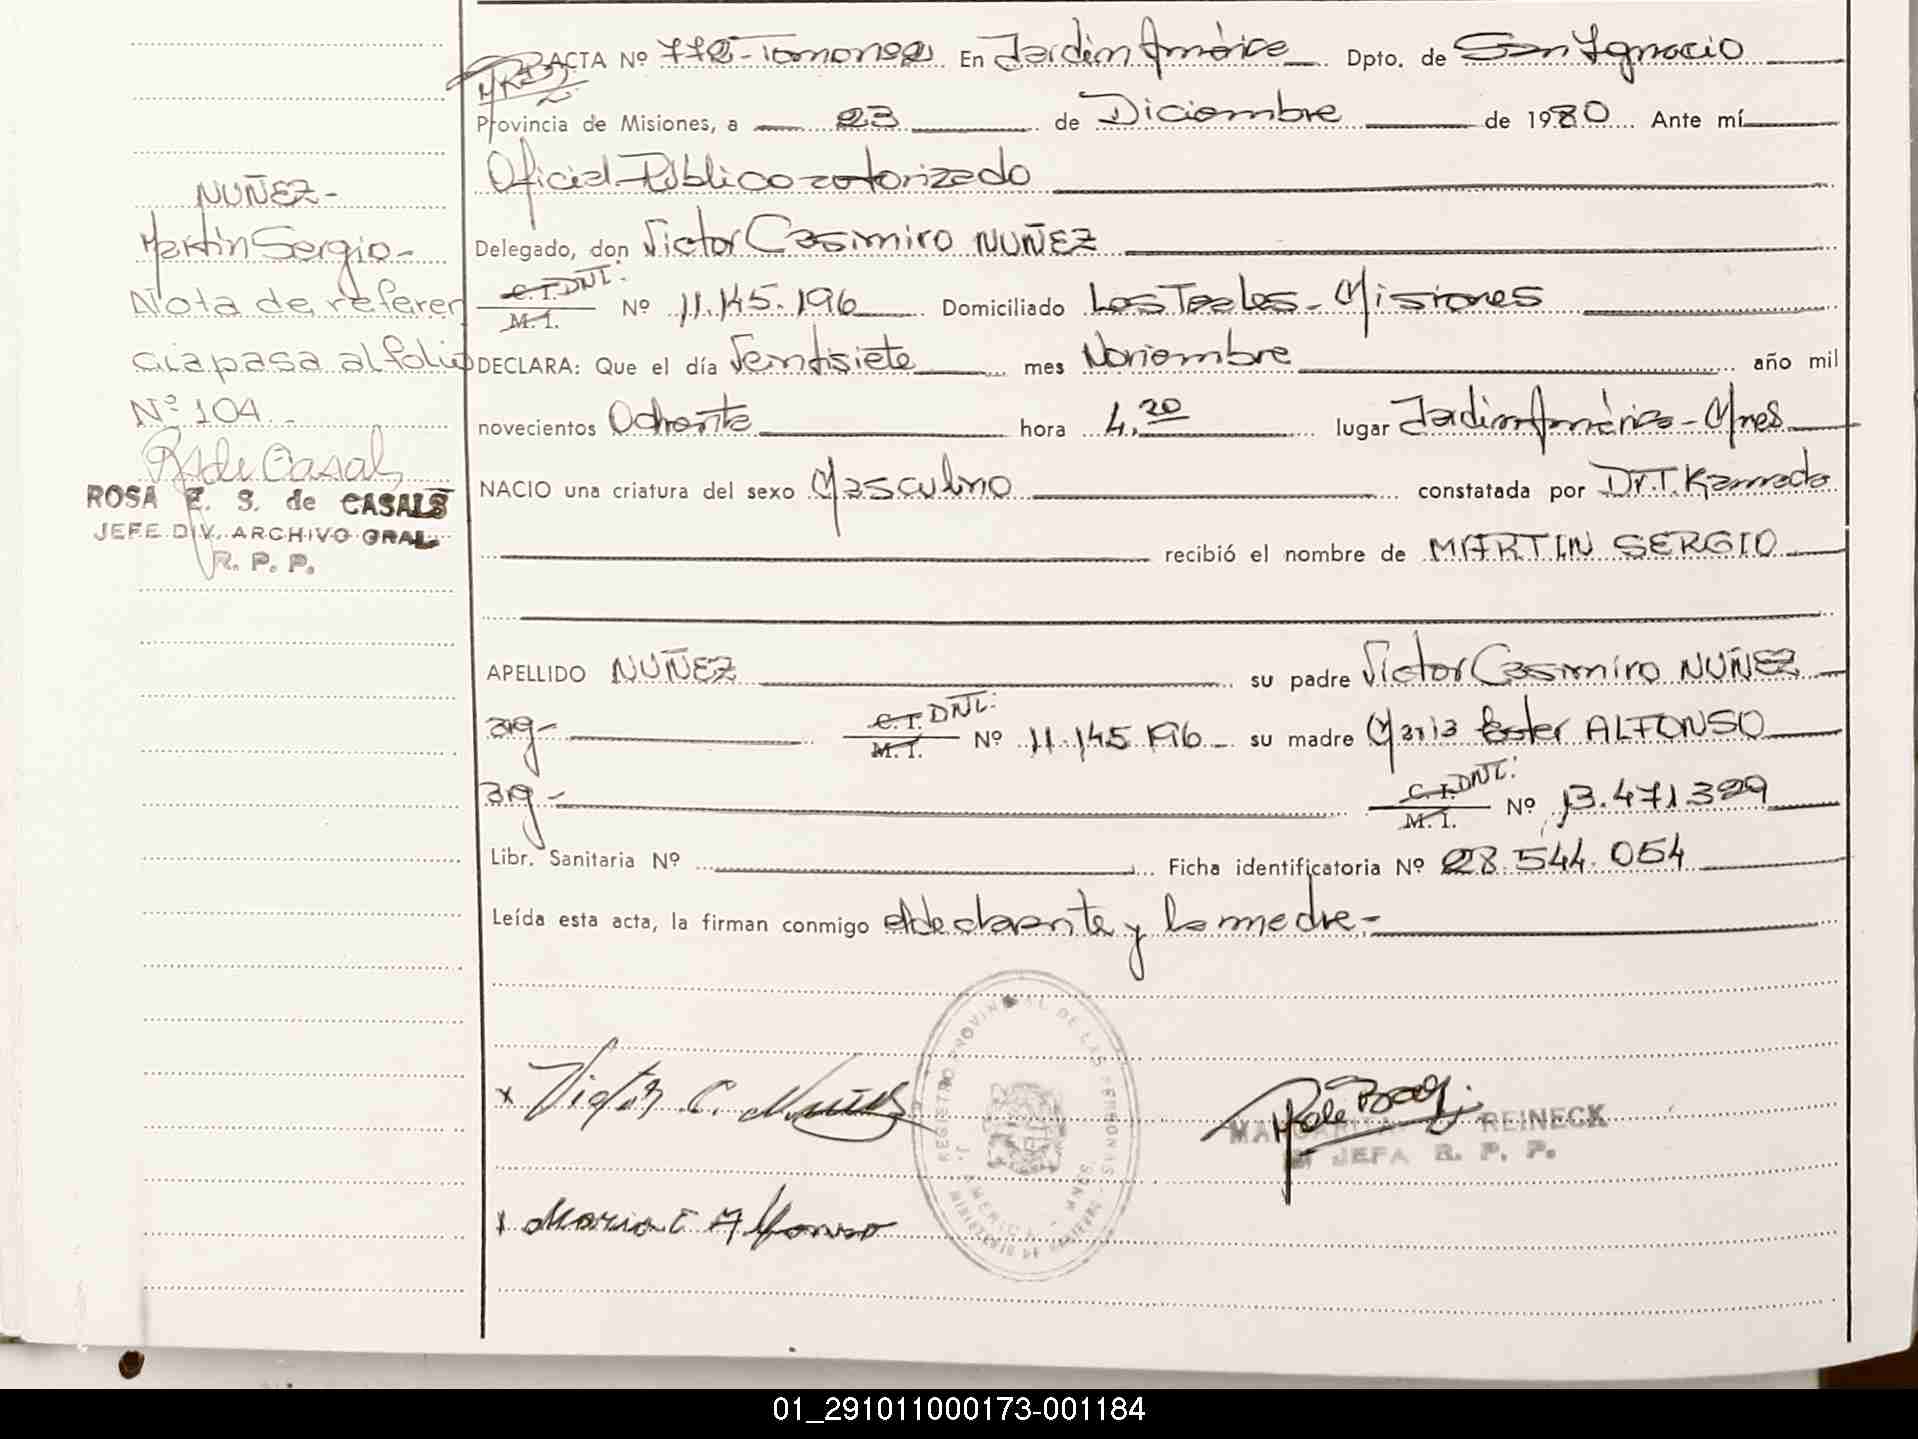 ACTA Nº 772-Tomo nº 2 En Jardín América Dpto. de San Ignacio
Provincia de Misiones, a 23 de Diciembre de 1980 Ante mí
Oficial Público autorizado
NUÑEZ-
Martín Sergio-
Delegado, don Victor Casimiro NUÑEZ
C.I. DNI:
M. I. Nº 11.145.196 Domiciliado Los Teales - Misiones
Nota de referen
cia pasa al folio
Nº 104.-
DECLARA: Que el día Ventisiete mes Noviembre año mil
novecientos Ochenta hora 4.20 lugar Jardín América - Mnes
R S de Casals
ROSA E. S. de CASALS
JEFE DIV. ARCHIVO GRAL
R. P. P.
NACIO una criatura del sexo Masculino constatada por Dr. T. Kameda
recibió el nombre de MARTIN SERGIO
APELLIDO NUÑEZ su padre Victor Casimiro NUÑEZ
arg- C.I. DNI: M. I. Nº 11.145.196 su madre Maria Ester ALFONSO
arg- C.I. DNI: M. I. Nº 13.471.329
Libr. Sanitaria Nº Ficha identificatoria Nº 28.544.054
Leída esta acta, la firman conmigo el declarante y la madre.-
x Victor C. Nuñez
REGISTRO PROVINCIAL DE LAS PERSONAS
J. AMERICA - MNES
MINISTERIO DE GOBIERNO
REINECK
JEFA R. P. P.
x Maria E Alfonso
01_291011000173-001184